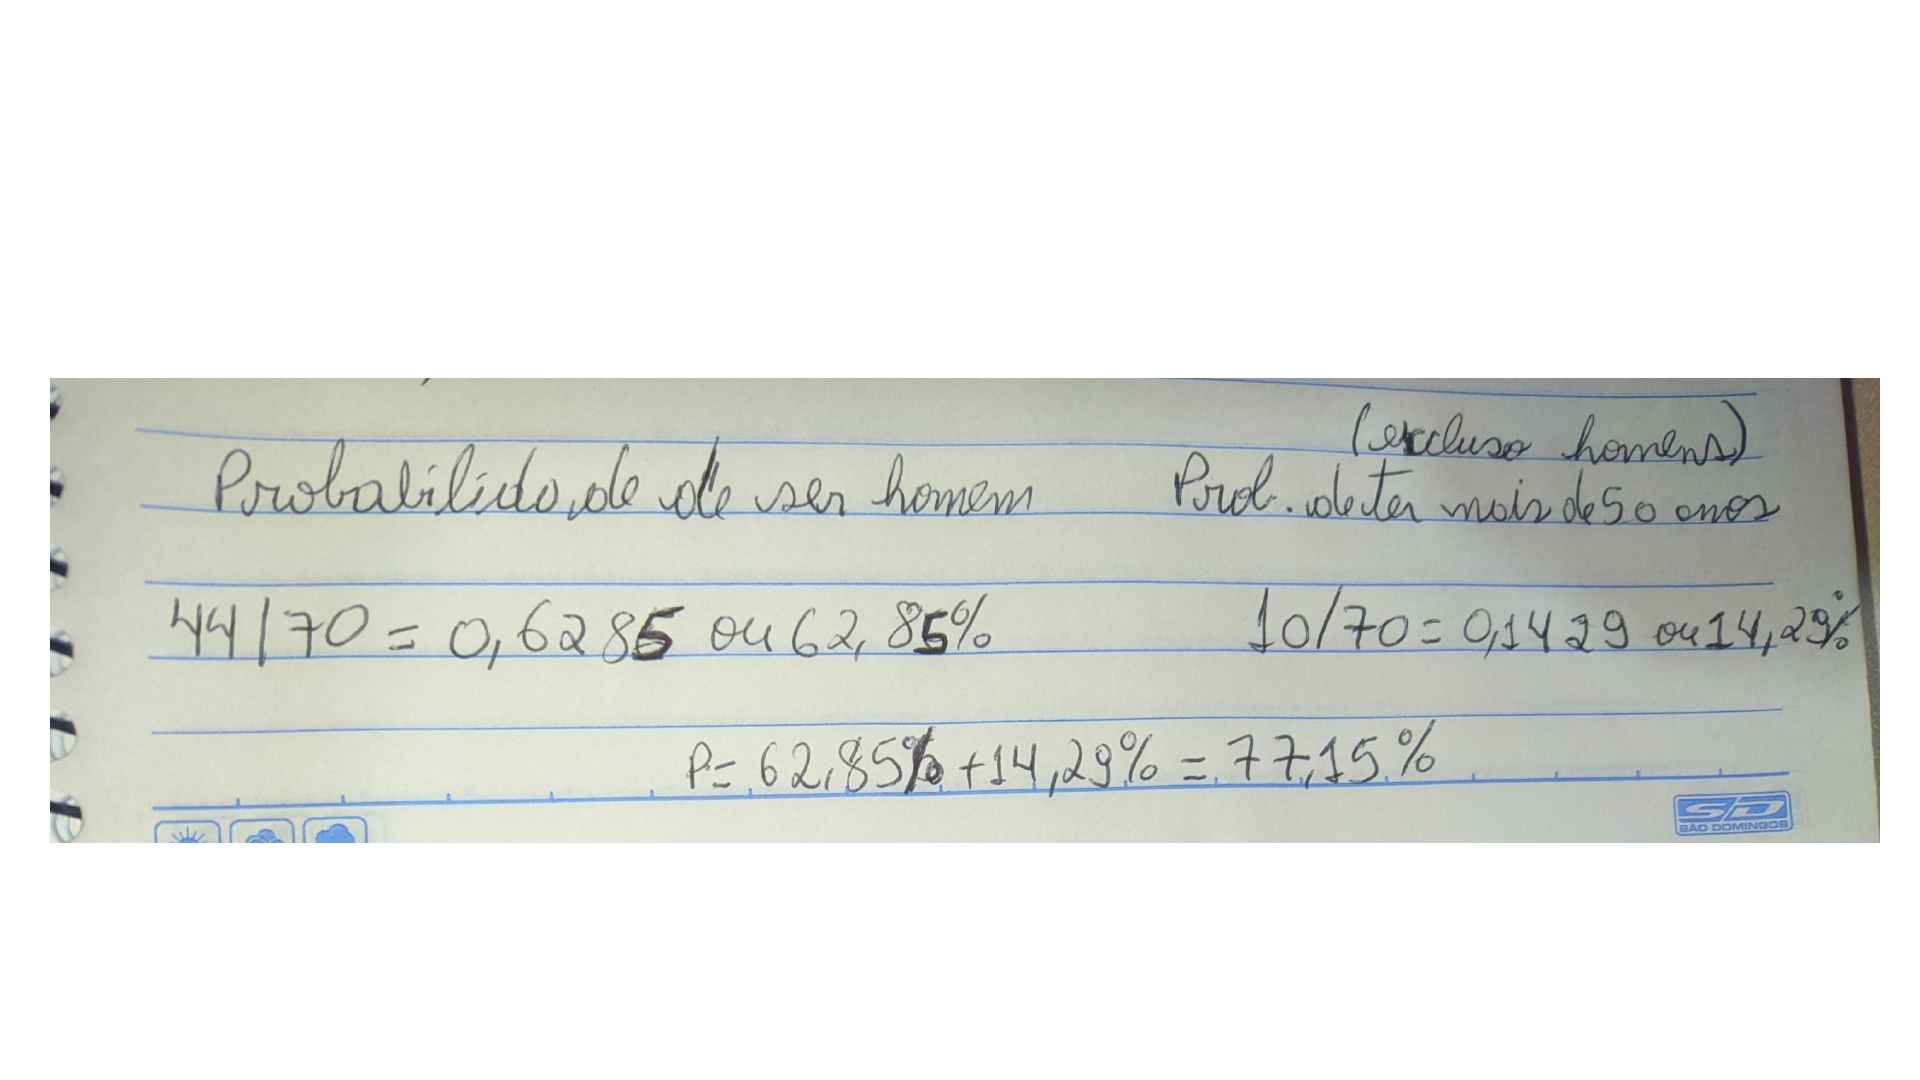 (excluso homens)
Probabilidade de ser homem Prob. de ter mais de 50 anos
44/70 = 0,6285 ou 62,85% 10/70 = 0,1429 ou 14,29%
P= 62,85% + 14,29% = 77,15%
SD
SÃO DOMINGOS